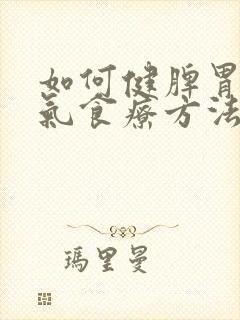 如何健脾胃
氣食療方法
瑪里曼